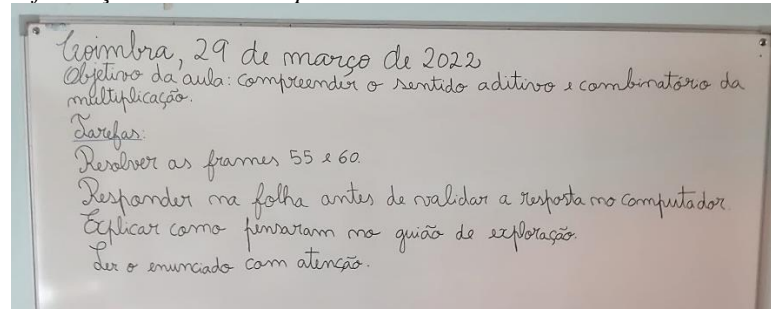 Coimbra, 29 de março de 2022
Objetivo da aula: compreender o sentido aditivo e combinatório da
multiplicação.
Tarefas:
Resolver as frames 55 e 60.
Responder na folha antes de validar a resposta no computador.
Explicar como pensaram no guião de exploração.
Ler o enunciado com atenção.